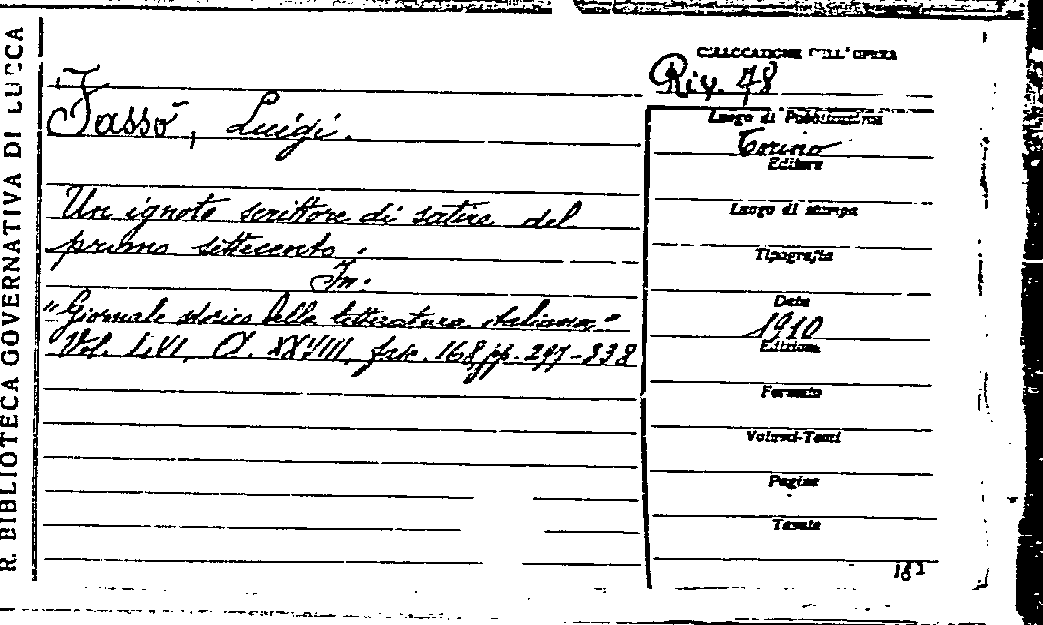 R. BIBLIOTECA GOVERNATIVA DI LUCCA
Fassò, Luigi.
Un ignoto scrittore di satire del
primo settecento.
In:
"Giornale storico della letteratura italiana."
Vol. LVI, A. XXVIII, fasc. 168, pp. 297-338
COLLOCAZIONE DELL'OPERA
Riv. 78
Luogo di Pubblicazione
Torino
Editore
Luogo di stampa
Tipografia
Data
1910
Edizione
Formato
Volumi-Tomi
Pagine
Tavole